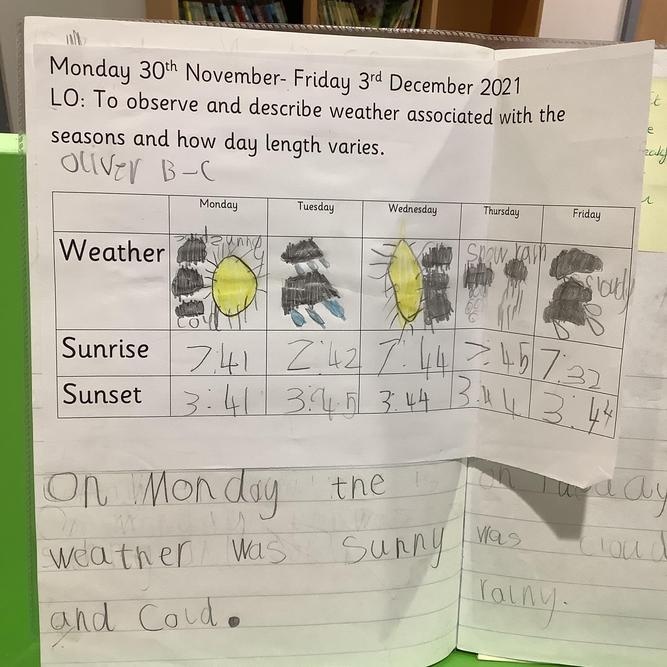 Monday 30th November- Friday 3rd December 2021
LO: To observe and describe weather associated with the
seasons and how day length varies.
Oliver B-C
Monday Tuesday Wednesday Thursday Friday
Weather sunny cold snow rain cloudy
Sunrise 7:41 7:42 7:44 7:45 7:32
Sunset 3:41 3:45 3:44 3:44 3:44
On Monday the
weather was sunny
and Cold.
on Tuesday
was cloud
rainy.